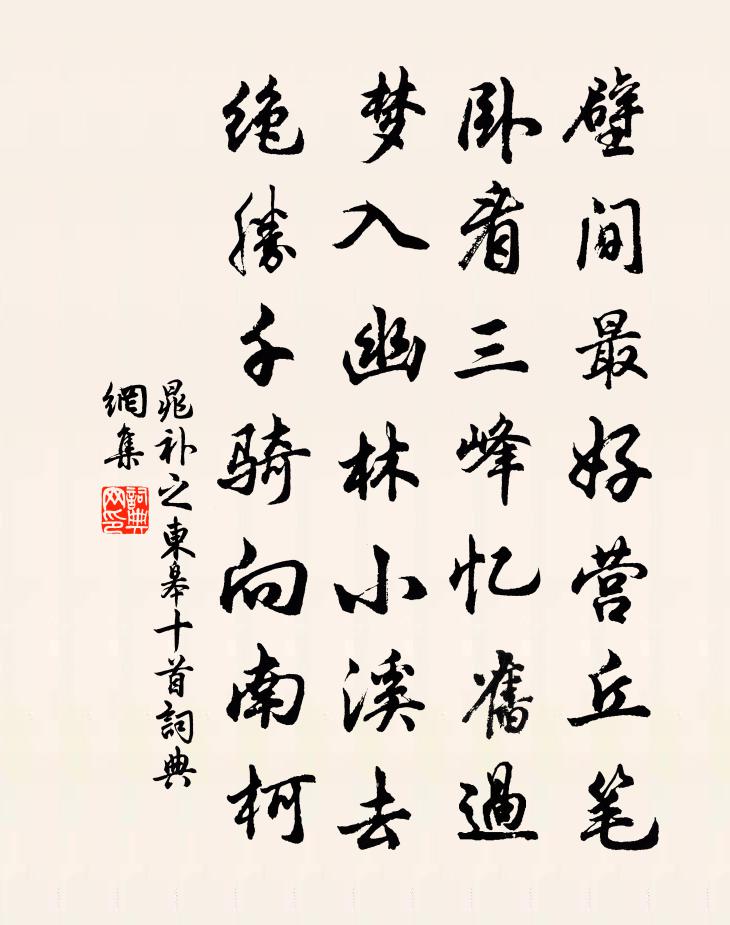 壁间最好营丘笔
卧看三峰忆舊過
梦入幽林小溪去
绝勝千骑向南柯
晁补之東皋十首詞典
網集
詞典
网印